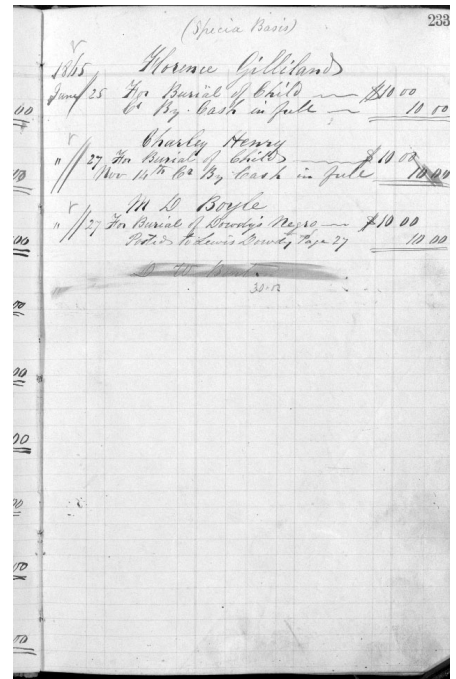 233
(Specia Basis)
1865 Florence Gilliland
June 25 For Burial of Child $10 00
Cr By Cash in full 10 00
Charley Henry
" 27 For Burial of Child $10 00
Nov 14th Cr By Cash in full 10.00
M D Boyle
" 27 For Burial of Dowdy's Negro $10.00
Posted to Lewis Dowdy Page 27 10.00
D W
00
00
00
00
00
00
00
00